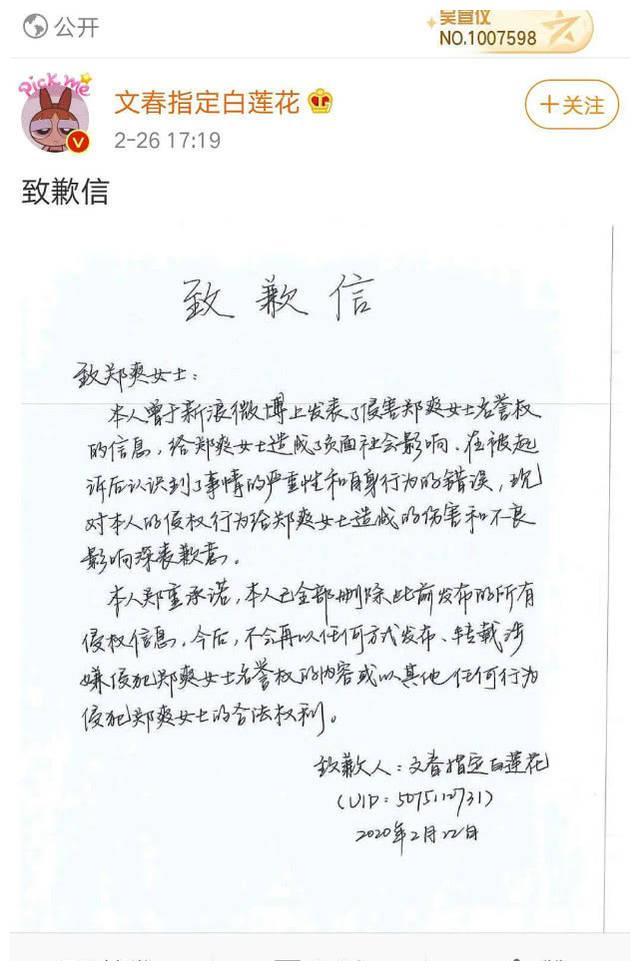 公开
吴宣仪
NO.1007598
Pick me
文春指定白莲花
+关注
2-26 17:19
致歉信
致歉信
致郑爽女士：
本人曾于新浪微博上发表了侵害郑爽女士名誉权
的信息，给郑爽女士造成了负面社会影响。在被起
诉后认识到了事情的严重性和自身行为的错误，现
对本人的侵权行为给郑爽女士造成的伤害和不良
影响深表歉意。
本人郑重承诺，本人已全部删除此前发布的所有
侵权信息，今后，不会再以任何方式发布、转载涉
嫌侵犯郑爽女士名誉权的内容或以其他任何行为
侵犯郑爽女士的合法权利。
致歉人：文春指定白莲花
(UID：5075112731)
2020年2月22日